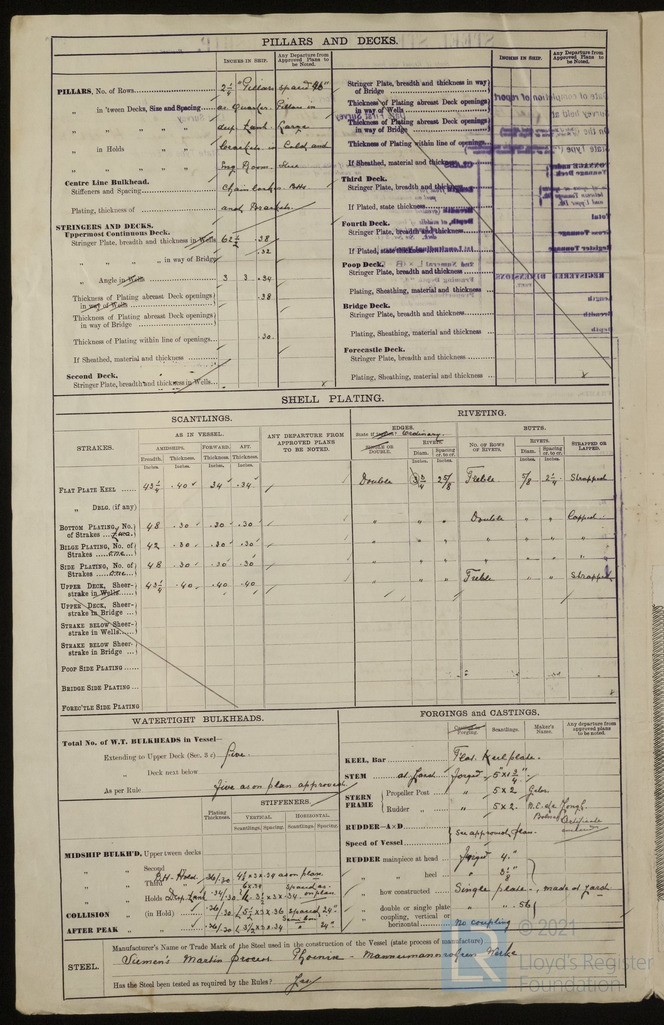 PILLARS AND DECKS.
INCHES IN SHIP.
Any Departure from Approved Plans to be Noted.
PILLARS, No. of Rows
2 1/4" Pillars spaced 46"
„ in 'tween Decks, Size and Spacing
as Quarter Pillars in
„ „ „ „
deep tank. Large
„ in Holds „ „
brackets in Cold and
„ „ „ „
Eng. Room. See
Centre Line Bulkhead.
Stiffeners and Spacing
Plating, thickness of
and Brackets.
STRINGERS AND DECKS.
Uppermost Continuous Deck.
Stringer Plate, breadth and thickness in Wells
62 1/2 .38
„ „ „ in way of Bridge
.32
„ Angle in Wells
3 3 .34
Thickness of Plating abreast Deck openings in way of Wells
.38
Thickness of Plating abreast Deck openings in way of Bridge
Thickness of Plating within line of openings
.30
If Sheathed, material and thickness
Second Deck.
Stringer Plate, breadth and thickness in Wells
INCHES IN SHIP.
Any Departure from Approved Plans to be Noted.
Stringer Plate, breadth and thickness in way of Bridge
Thickness of Plating abreast Deck openings in way of Wells
Thickness of Plating abreast Deck openings in way of Bridge
Thickness of Plating within line of openings
If Sheathed, material and thickness
Third Deck.
Stringer Plate, breadth and thickness
If Plated, state thickness
Fourth Deck.
Stringer Plate, breadth and thickness
If Plated, state thickness
Poop Deck.
Stringer Plate, breadth and thickness
Plating, Sheathing, material and thickness
Bridge Deck.
Stringer Plate, breadth and thickness
Plating, Sheathing, material and thickness
Forecastle Deck.
Stringer Plate, breadth and thickness
Plating, Sheathing, material and thickness
SHELL PLATING.
SCANTLINGS.
RIVETING.
STRAKES.
AS IN VESSEL.
AMIDSHIPS.
FORWARD.
AFT.
Breadth. Thickness. Thickness. Thickness.
Inches. Inches. Inches. Inches.
ANY DEPARTURE FROM APPROVED PLANS TO BE NOTED.
EDGES.
Ordinary.
SINGLE OR DOUBLE.
RIVETS.
Diam. Spacing cr. to cr.
Inches. Inches.
BUTTS.
NO. OF ROWS OF RIVETS.
RIVETS.
Diam. Spacing cr. to cr.
Inches. Inches.
STRAPPED OR LAPPED.
FLAT PLATE KEEL 43 1/4 .40 .34 .34 Double 3/4 2 5/8 Treble 5/8 2 1/4 Strapped
„ DBLG. (if any)
BOTTOM PLATING, No. of Strakes two. 48 .30 .30 .30 „ „ „ Double „ „ Lapped
BILGE PLATING, No. of Strakes one. 42 .30 .30 .30 „ „ „ „ „ „ „
SIDE PLATING, No. of Strakes one. 48 .30 .30 .30
UPPER DECK, Sheer-strake in Wells 43 1/4 .40 .40 .40 „ „ „ Treble „ „ Strapped
UPPER DECK, Sheer-strake in Bridge
STRAKE BELOW Sheer-strake in Wells
STRAKE BELOW Sheer-strake in Bridge
POOP SIDE PLATING
BRIDGE SIDE PLATING
FOREC'TLE SIDE PLATING
WATERTIGHT BULKHEADS.
Total No. of W.T. BULKHEADS in Vessel—
Extending to Upper Deck (Sec. 3 c) five.
„ Deck next below
As per Rule five as on plan approved.
STIFFENERS.
Plating Thickness.
VERTICAL.
HORIZONTAL.
Scantlings. Spacing. Scantlings. Spacing.
MIDSHIP BULKH'D, Upper tween decks
„ „ Second „
„ „ Third „
„ „ Holds Deep tank
COLLISION „ (in Hold)
AFTER PEAK „ „
FORGINGS and CASTINGS.
Casting or Forging.
Scantlings.
Maker's Name.
Any departure from approved plans to be noted.
KEEL, Bar
Flat Keelplate.
STEM
forged 5" x 1 3/4"
STERN FRAME
Propeller Post „ 5 x 2
Rudder „ „ 5 x 2.
Certificate
RUDDER—A×D
See approved plan.
Speed of Vessel
RUDDER mainpiece at head forged 4."
„ „ heel „ 3 1/8"
„ how constructed Single plate, made at yard
„ double or single plate „ .56
„ coupling, vertical or horizontal no coupling
STEEL.
Manufacturer's Name or Trade Mark of the Steel used in the construction of the Vessel (state process of manufacture)
Siemens Martin process Phoenix - Mannesmannröhren Werke
Has the Steel been tested as required by the Rules? Yes
© 2021
Lloyd's Register
Foundation
LR